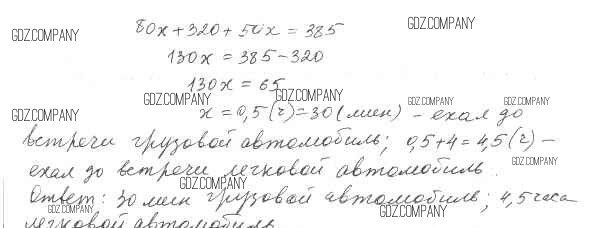 80x + 320 + 50x = 385
GDZ.COMPANY GDZ.COMPANY
130x = 385 - 320
130x = 65
GDZ.COMPANY GDZ.COMPANY GDZ.COMPANY GDZ.COMPANY
GDZ.COMPANY x = 0,5 (г) = 30 (мин) - ехал до
встречи грузовой автомобиль; 0,5 + 4 = 4,5 (г) -
ехал до встречи легковой автомобиль. GDZ.COMPANY
Ответ: 30 мин грузовой автомобиль; 4,5 часа
GDZ.COMPANY GDZ.COMPANY
легковой автомобиль